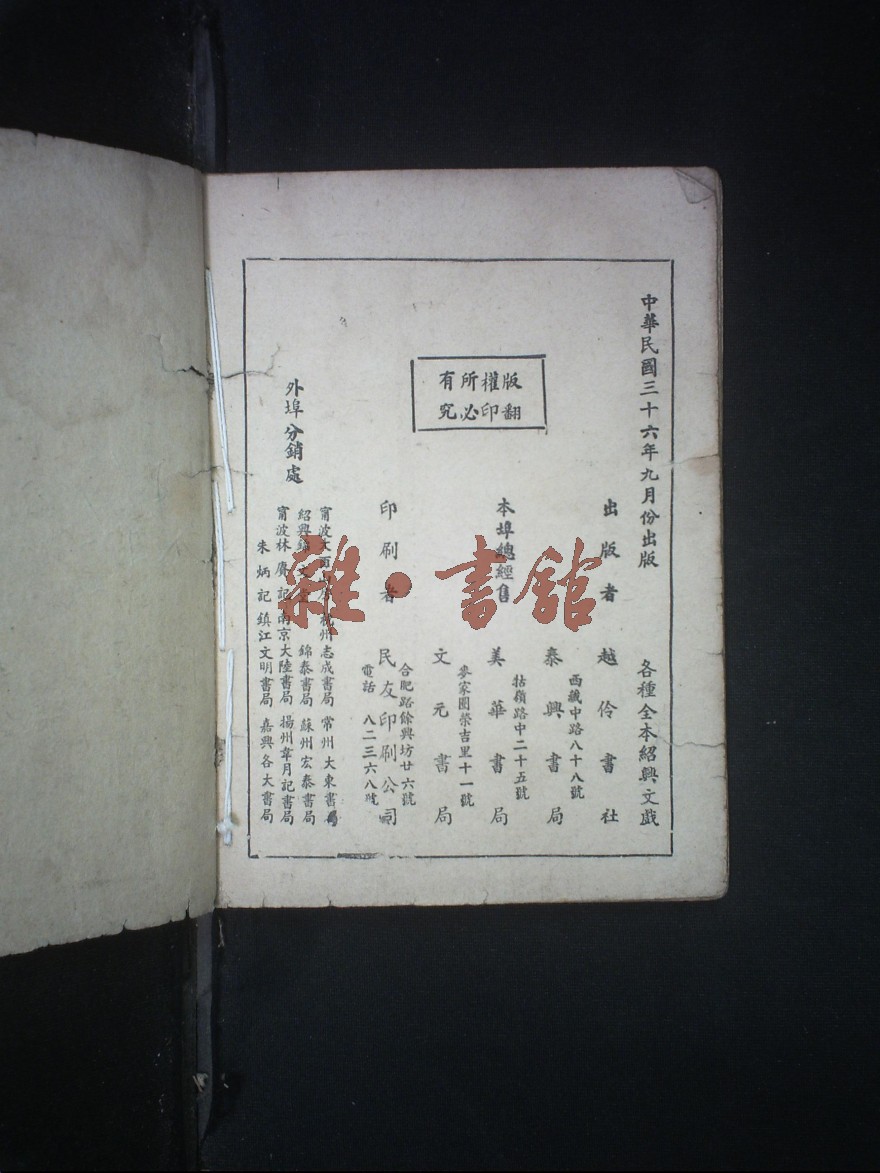 中華民國三十六年九月份出版
各種全本紹興文戲
版權所有
翻印必究
出版者 越伶書社
本埠總經售
西藏中路八十八號
泰興書局
牯嶺路中二十五號
美華書局
麥家圈榮吉里十一號
文元書局
印刷者 民友印刷公司
合肥路餘興坊廿六號
電話 八二三六八號
外埠分銷處
甯波文 杭州志成書局 常州大東書局
紹興錦文 錦泰書局 蘇州宏泰書局
甯波林賡記 南京大陸書局 揚州韋月記書局
朱炳記 鎮江文明書局 嘉興各大書局
雜·書館